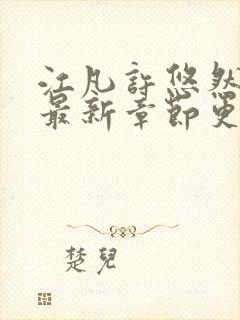 江凡許悠然
最新章節更
楚兒